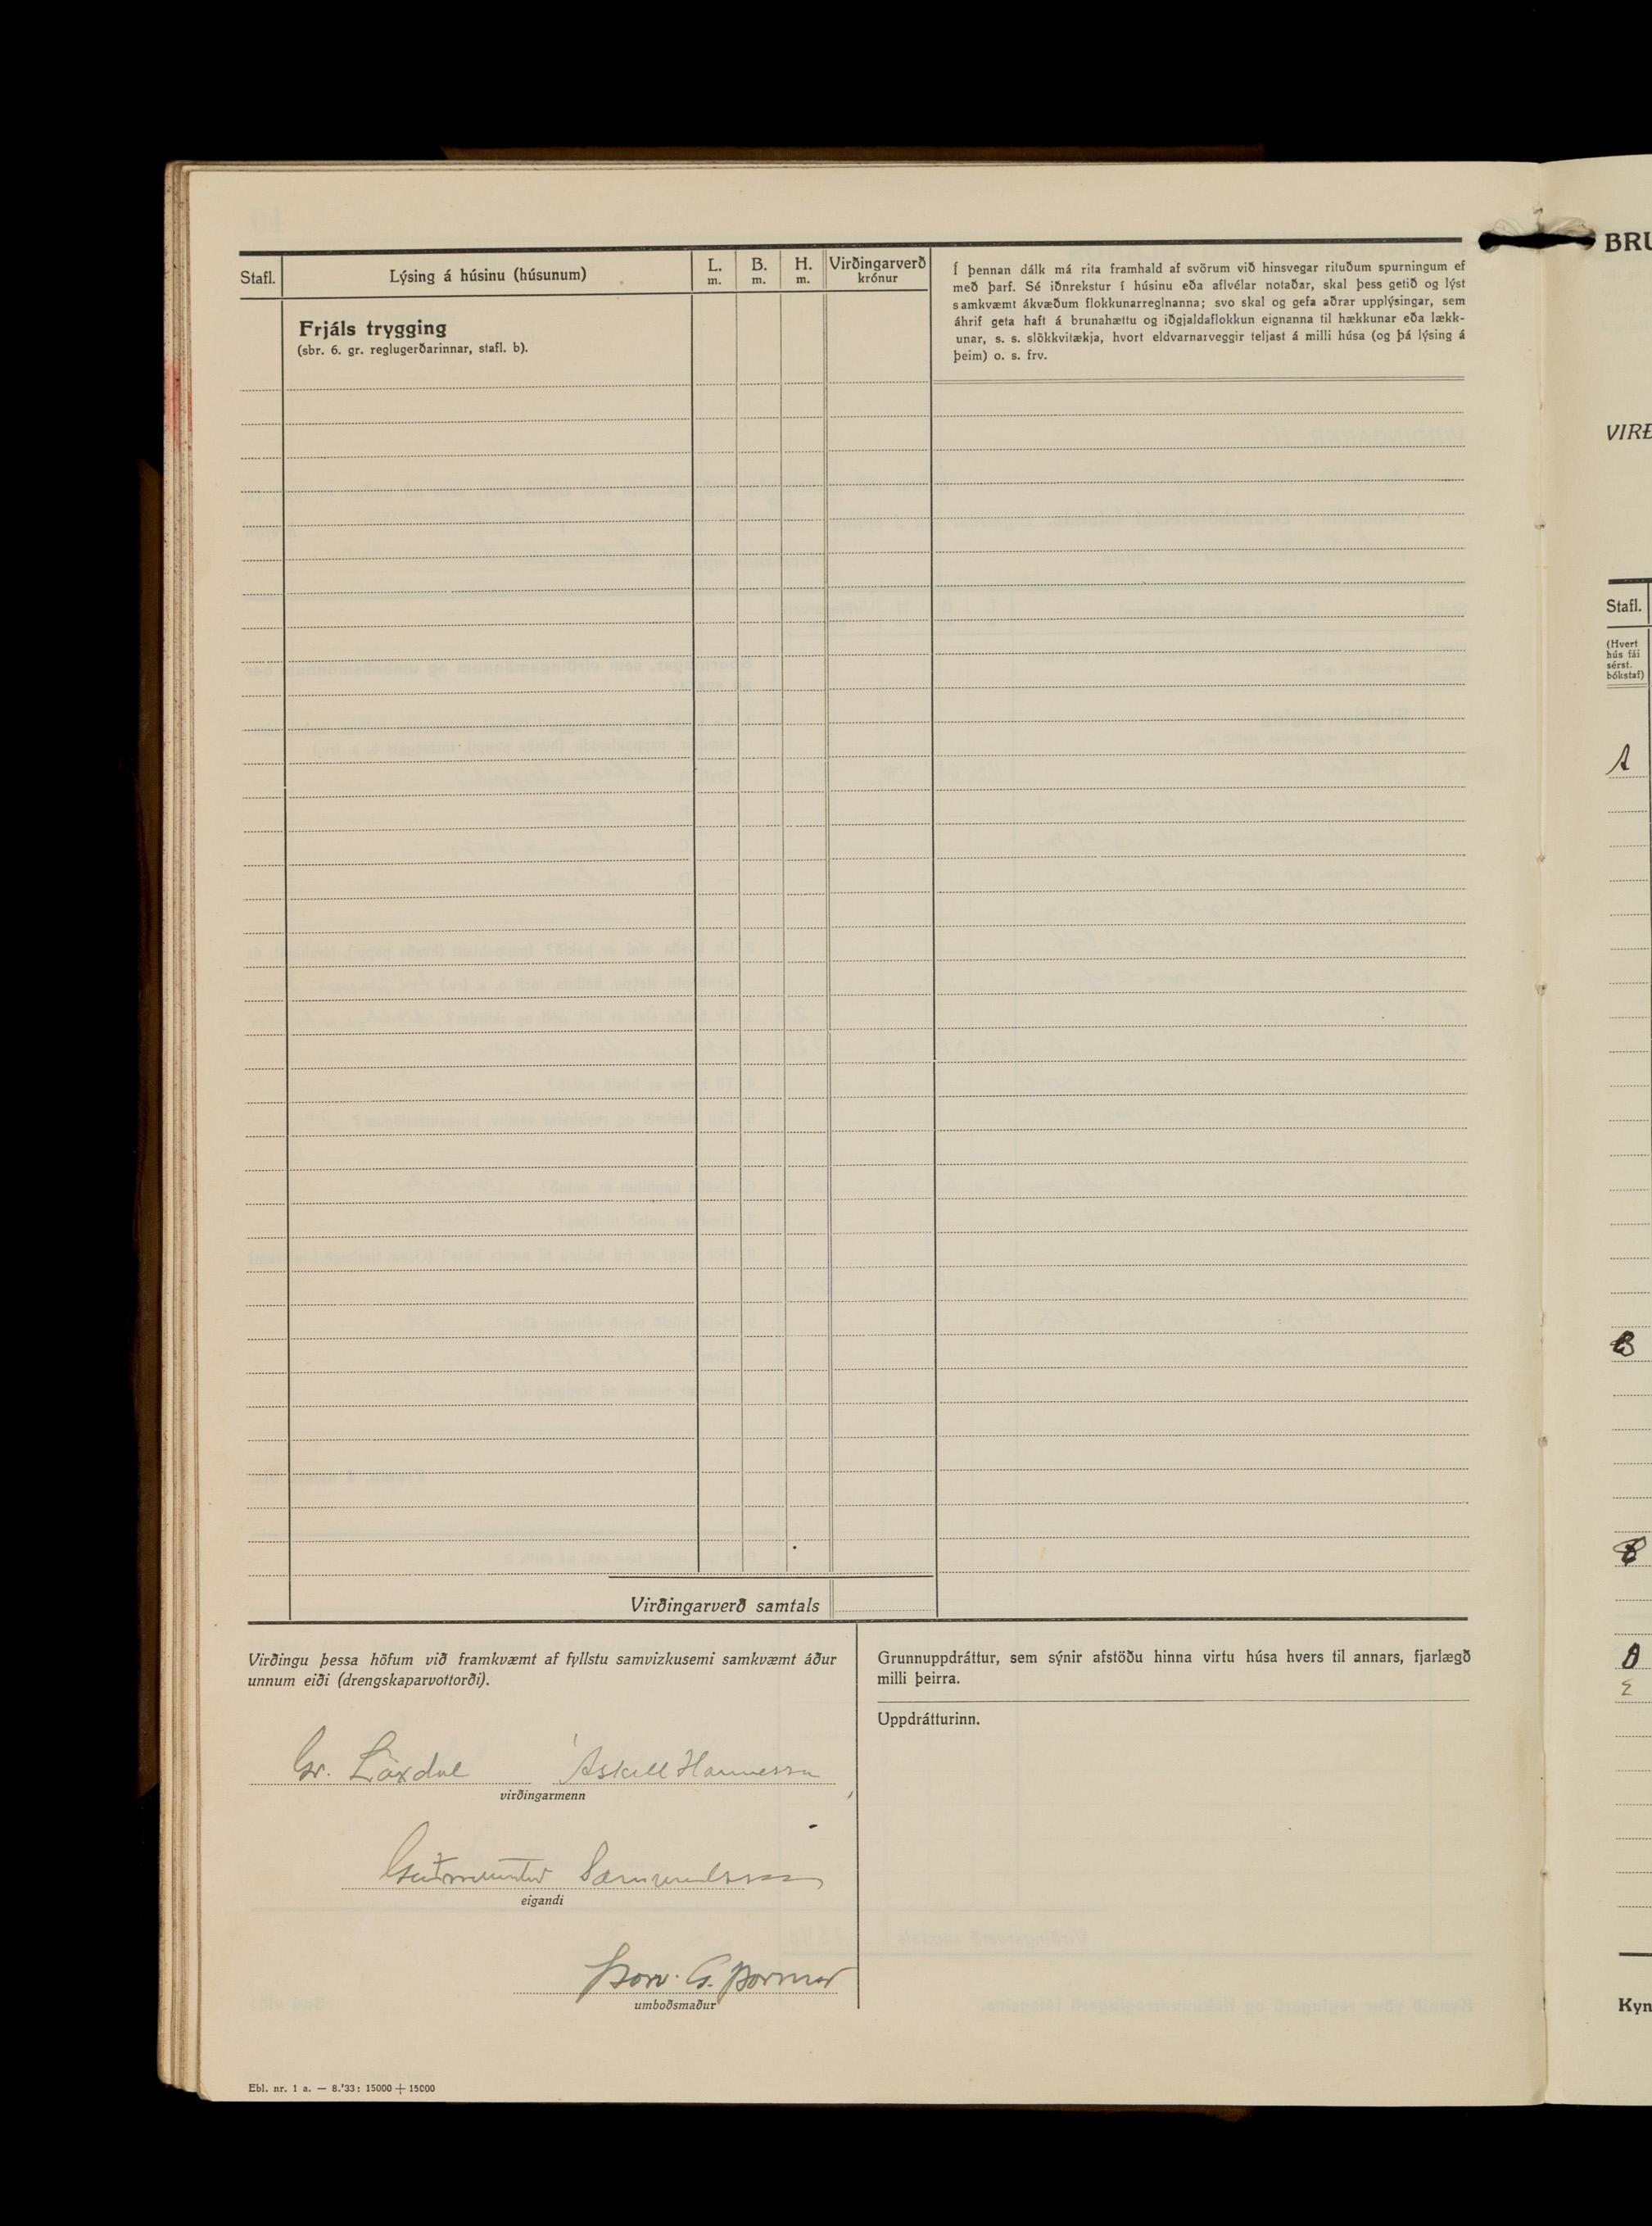 Stafl.
Lýsing á húsinu (húsunum)
L.
m.
B.
m.
H.
m.
Virðingarverð
krónur
Frjáls trygging
(sbr. 6. gr. reglugerðarinnar, stafl. b).
Í þennan dálk má rita framhald af svörum við hinsvegar rituðum spurningum ef
með þarf. Sé iðnrekstur í húsinu eða aflvélar notaðar, skal þess getið og lýst
samkvæmt ákvæðum flokkunarreglnanna; svo skal og gefa aðrar upplýsingar, sem
áhrif geta haft á brunahættu og iðgjaldaflokkun eignanna til hækkunar eða lækk-
unar, s. s. slökkvitækja, hvort eldvarnarveggir teljast á milli húsa (og þá lýsing á
þeim) o. s. frv.
Virðingarverð samtals
Virðingu þessa höfum við framkvæmt af fyllstu samvizkusemi samkvæmt áður
unnum eiði (drengskaparvottorði).
Gr. Laxdal Áskell Hannesson
virðingarmenn
Guðmundur Samuelsson
eigandi
Þorv. G. Þormar
umboðsmaður
Grunnuppdráttur, sem sýnir afstöðu hinna virtu húsa hvers til annars, fjarlægð
milli þeirra.
Uppdrátturinn.
Ebl. nr. 1 a. — 8.'33: 15000 + 15000
BRU
VIRÐ
Stafl.
(Hvert
hús fái
sérst.
bókstaf)
A
B
Kyn